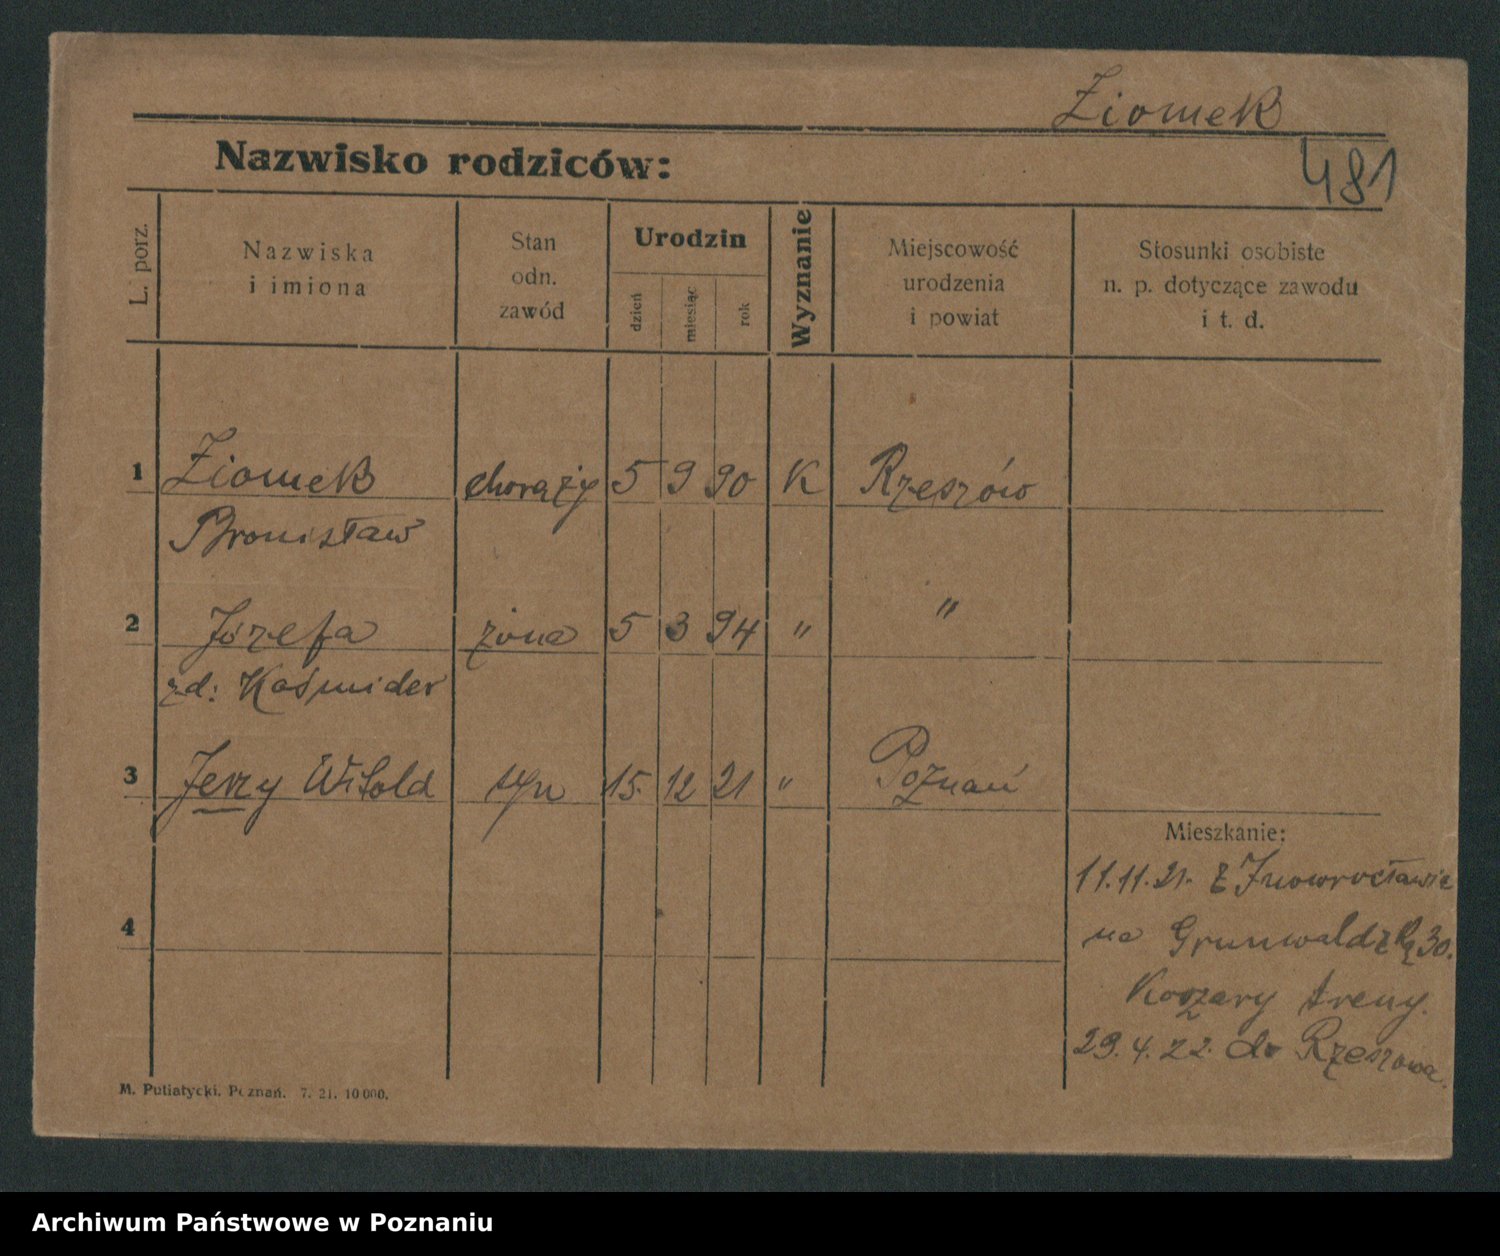 Ziomek
Nazwisko rodziców:
481
L. porz.
Nazwiska
i imiona
Stan
odn.
zawód
Urodzin
dzień
miesiąc
rok
Wyznanie
Miejscowość
urodzenia
i powiat
Stosunki osobiste
n. p. dotyczące zawodu
i t. d.
1 Ziomek chorąży 5 9 90 K Rzeszów
Bronisław
2 Józefa żona 5 3 94 " "
zd: Kaśmider
3 Jerzy Witold syn 15. 12 21 " Poznań
Mieszkanie:
11.11.21. z Inowrocławia
4
na Grunwaldzką 30.
Koszary treny.
29.4.22. do Rzeszowa.
M. Putiatycki. Poznań. 7. 21. 10000.
Archiwum Państwowe w Poznaniu